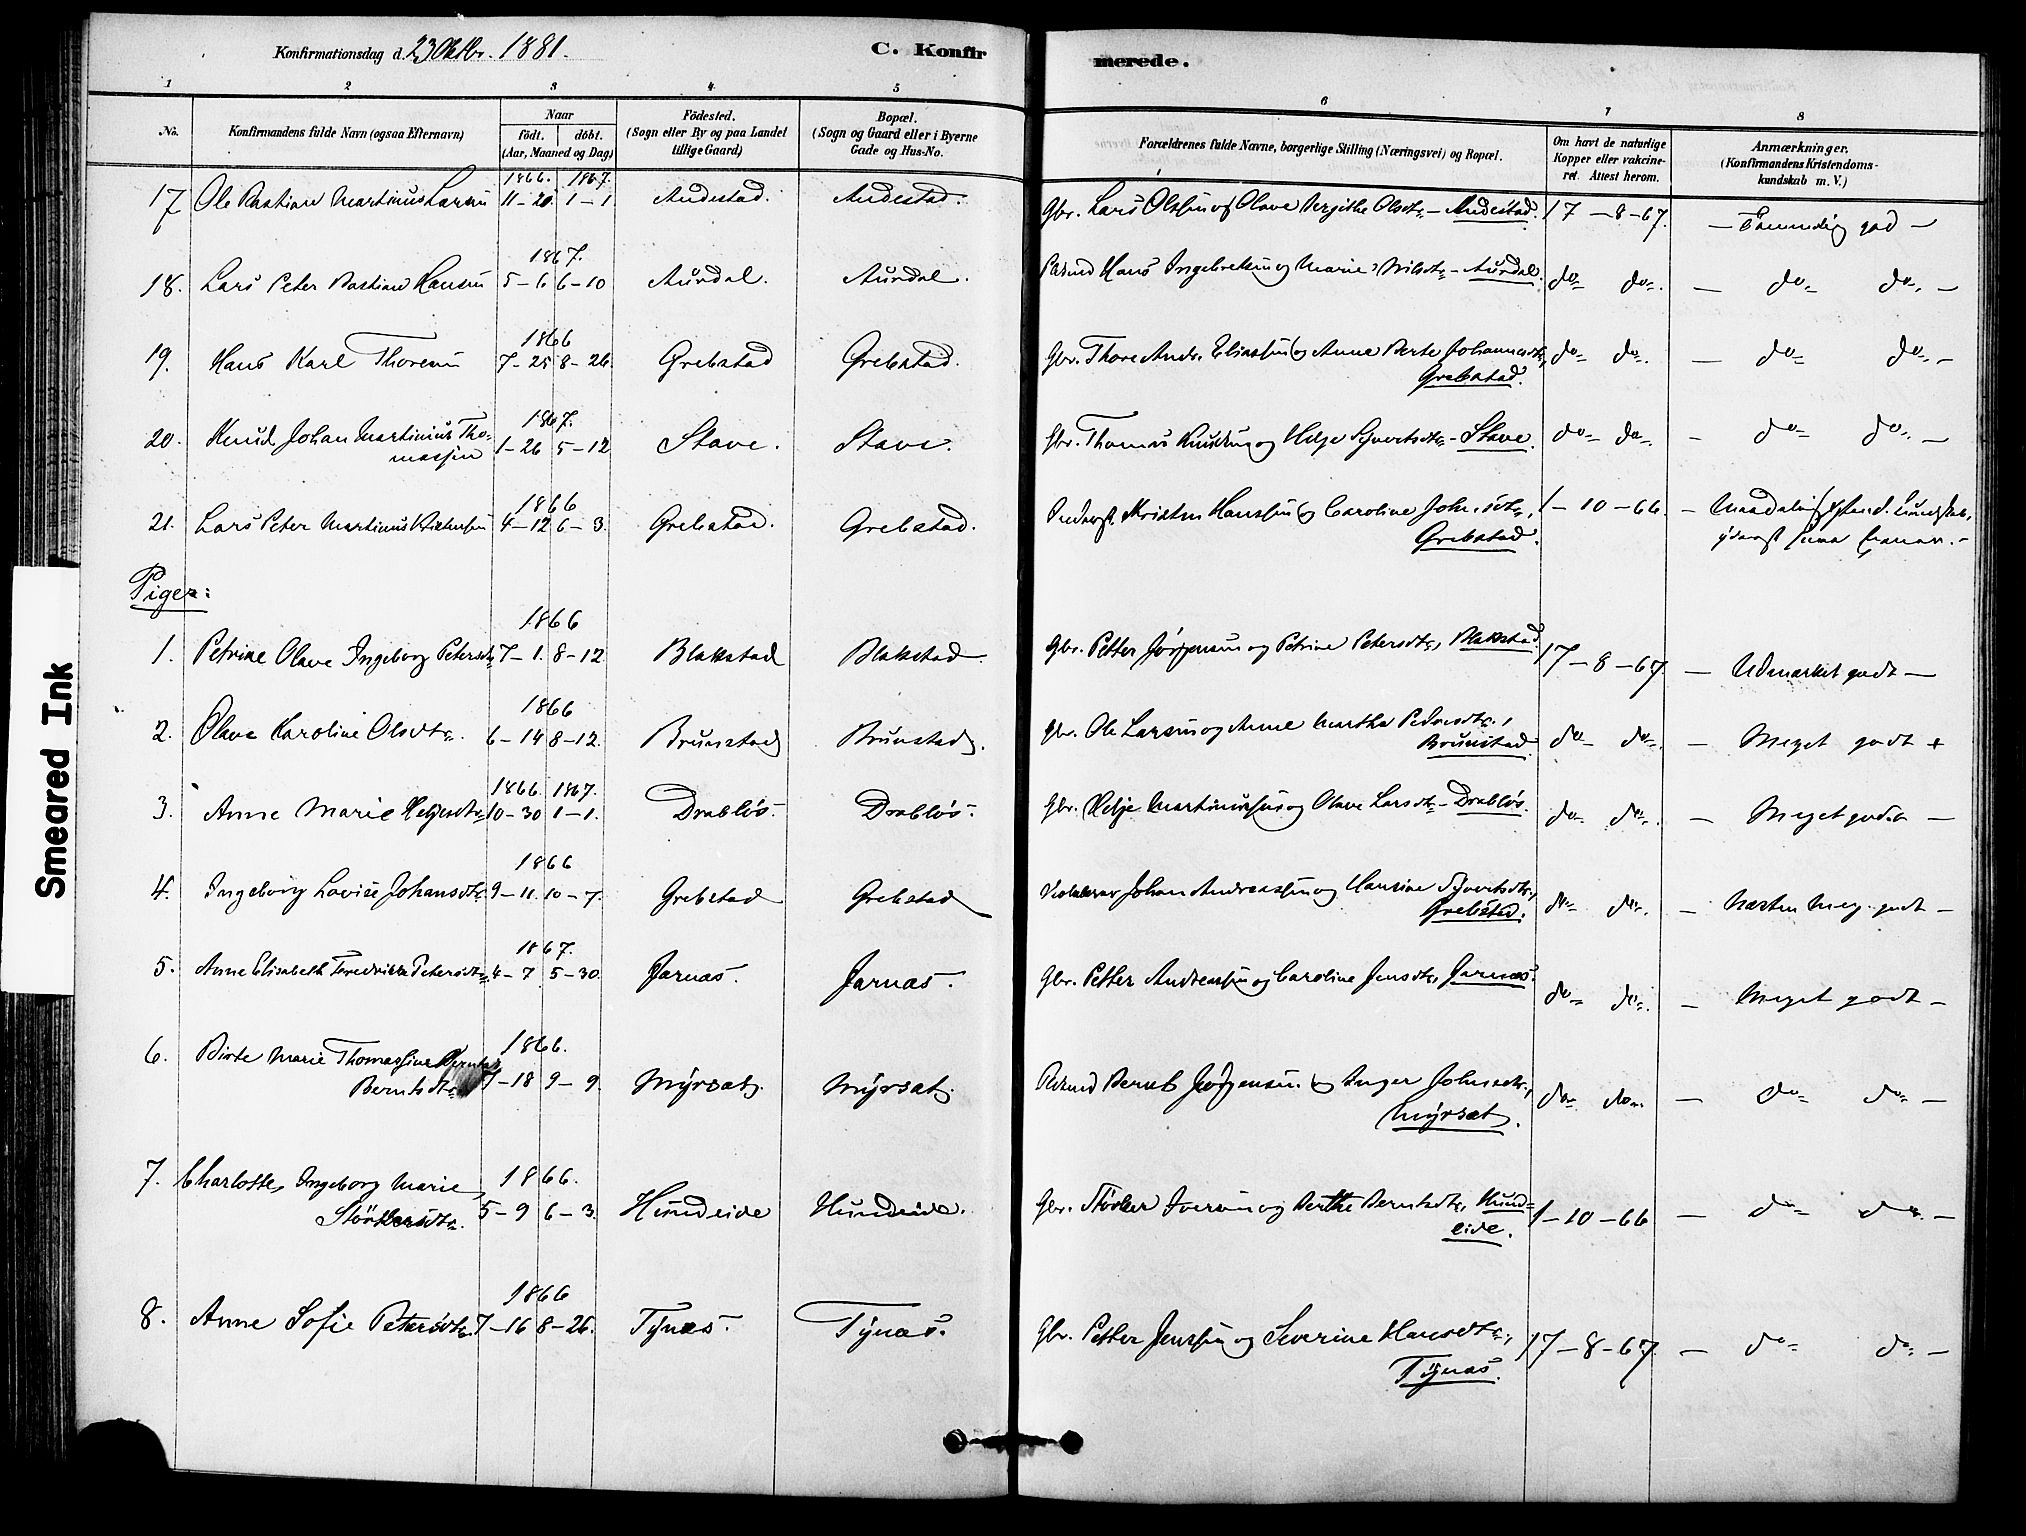 Konfirmationsdag d. 23 Oktbr. 1881.
C. Konfirmerede.
1 2 3 4 5 6 7 8
No.
Konfirmandens fulde Navn (ogsaa Efternavn)
Naar
födt. döbt.
(Aar, Maaned og Dag)
Födested.
(Sogn eller By og paa Landet
tillige Gaard)
Bopæl.
(Sogn og Gaard eller i Byerne
Gade og Hus-No.
Forældrenes fulde Navne, borgerlige Stilling (Næringsvei) og Bopæl.
Om havt de naturlige
Kopper eller vakcine-
ret. Attest herom.
Anmærkninger.
(Konfirmandens Kristendoms-
kundskab m. V.)
1866. 1867.
17 Ole Bastian Martinus Larsen 11-20 1-1 Andestad. Andestad. Gbr. Lars Olsen og Olave Bergithe Olsdtr.- Andestad. 17-8-67. - Temmelig god -
1867.
18. Lars Peter Bastian Hansen 5-6 6-10 Aurdal. Aurdal. Hans Ingebretsen og Marie Nilsdtr.- Aurdal. do do. - do do. -
1866
19. Hans Karl Thoresen 7-25 8-26. Grebstad Grebstad. Gbr. Thore Andr. Eliassen og Anne Berte Johannesdtr, do do. - do do. -
Grebstad.
1867.
20. Knud Johan Martinius Tho-
massen 1-26 5-12 Stave. Stave. Gbr. Thomas Knudsen og Helje Syvertsdtr.- Stave. do do. - do do. -
1866
21. Lars Peter Martinus Kristensen 4-12 6-3. Grebstad. Grebstad. Kristen Hanssen og Caroline Johnsdtr., 1-10-66. -
Grebstad.
Piger:
1866
1. Petrine Olave Ingeborg Petersdtr 7-1. 8-12 Blakstad Blakstad. Gbr. Petter Jørgensen og Petrine Petersdtr, Blakstad. 17-8-67. - Udmærket godt -
1866
2. Olave Karoline Olsdtr. 6-14 8-12. Brunstad Brunstad. Gbr. Ole Larsen og Anne Martha Pedersdtr.,
Brunstad. do do. - Meget godt +
1866. 1867.
3. Anne Marie Heljesdtr 10-30 1-1. Drabløs. Drabløs. Gbr. Helje Martinussen og Olave Larsdtr- Drabløs. do do. - Meget godt -
1866
4. Ingeborg Lovise Johansdtr. 9-11. 10-7. Grebstad Grebstad Johan Andreassen og Hansine Syvertsdtr.,
Grebstad. do do. - Næsten meg. godt -
1867.
5. Anne Elisabeth Fredrikke Petersdtr. 4-7 5-30. Jarnæs. Jarnæs. Gbr. Petter Andreassen og Caroline Jensdtr, Jarnæs. do do. - Meget godt -
1866.
6. Birte Marie Thomassine
Berntsdtr 7-18 9-9. Myrsæt. Myrsæt. Bernt Jørgensen og Inger Johnsdtr, do do. - do do. -
Myrsæt.
1866.
7. Charlotte, Ingeborg Marie,
Størkersdtr. 5-9 6-3. Hundeide Hundeide. Gbr. Størker Iversen og Berthe Berntsdtr, Hund-
eide. 1-10-66 - do do. -
1866
8. Anne Sofie Petersdtr. 7-16 8-26. Tynæs. Tynæs. Gbr. Petter Jenssen og Severine Hansdtr.,
Tynæs. 17-8-67. - do do -
Smeared Ink